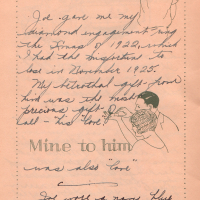 Joe gave me my
diamond engagement ring
the Xmas of 1922, which
I had the misfortune to
lose in November 1925.
My betrothal gift from
him was the most
precious gift of
all - his "love".
Mine to him
was also "love"
Joe wore a navy blue